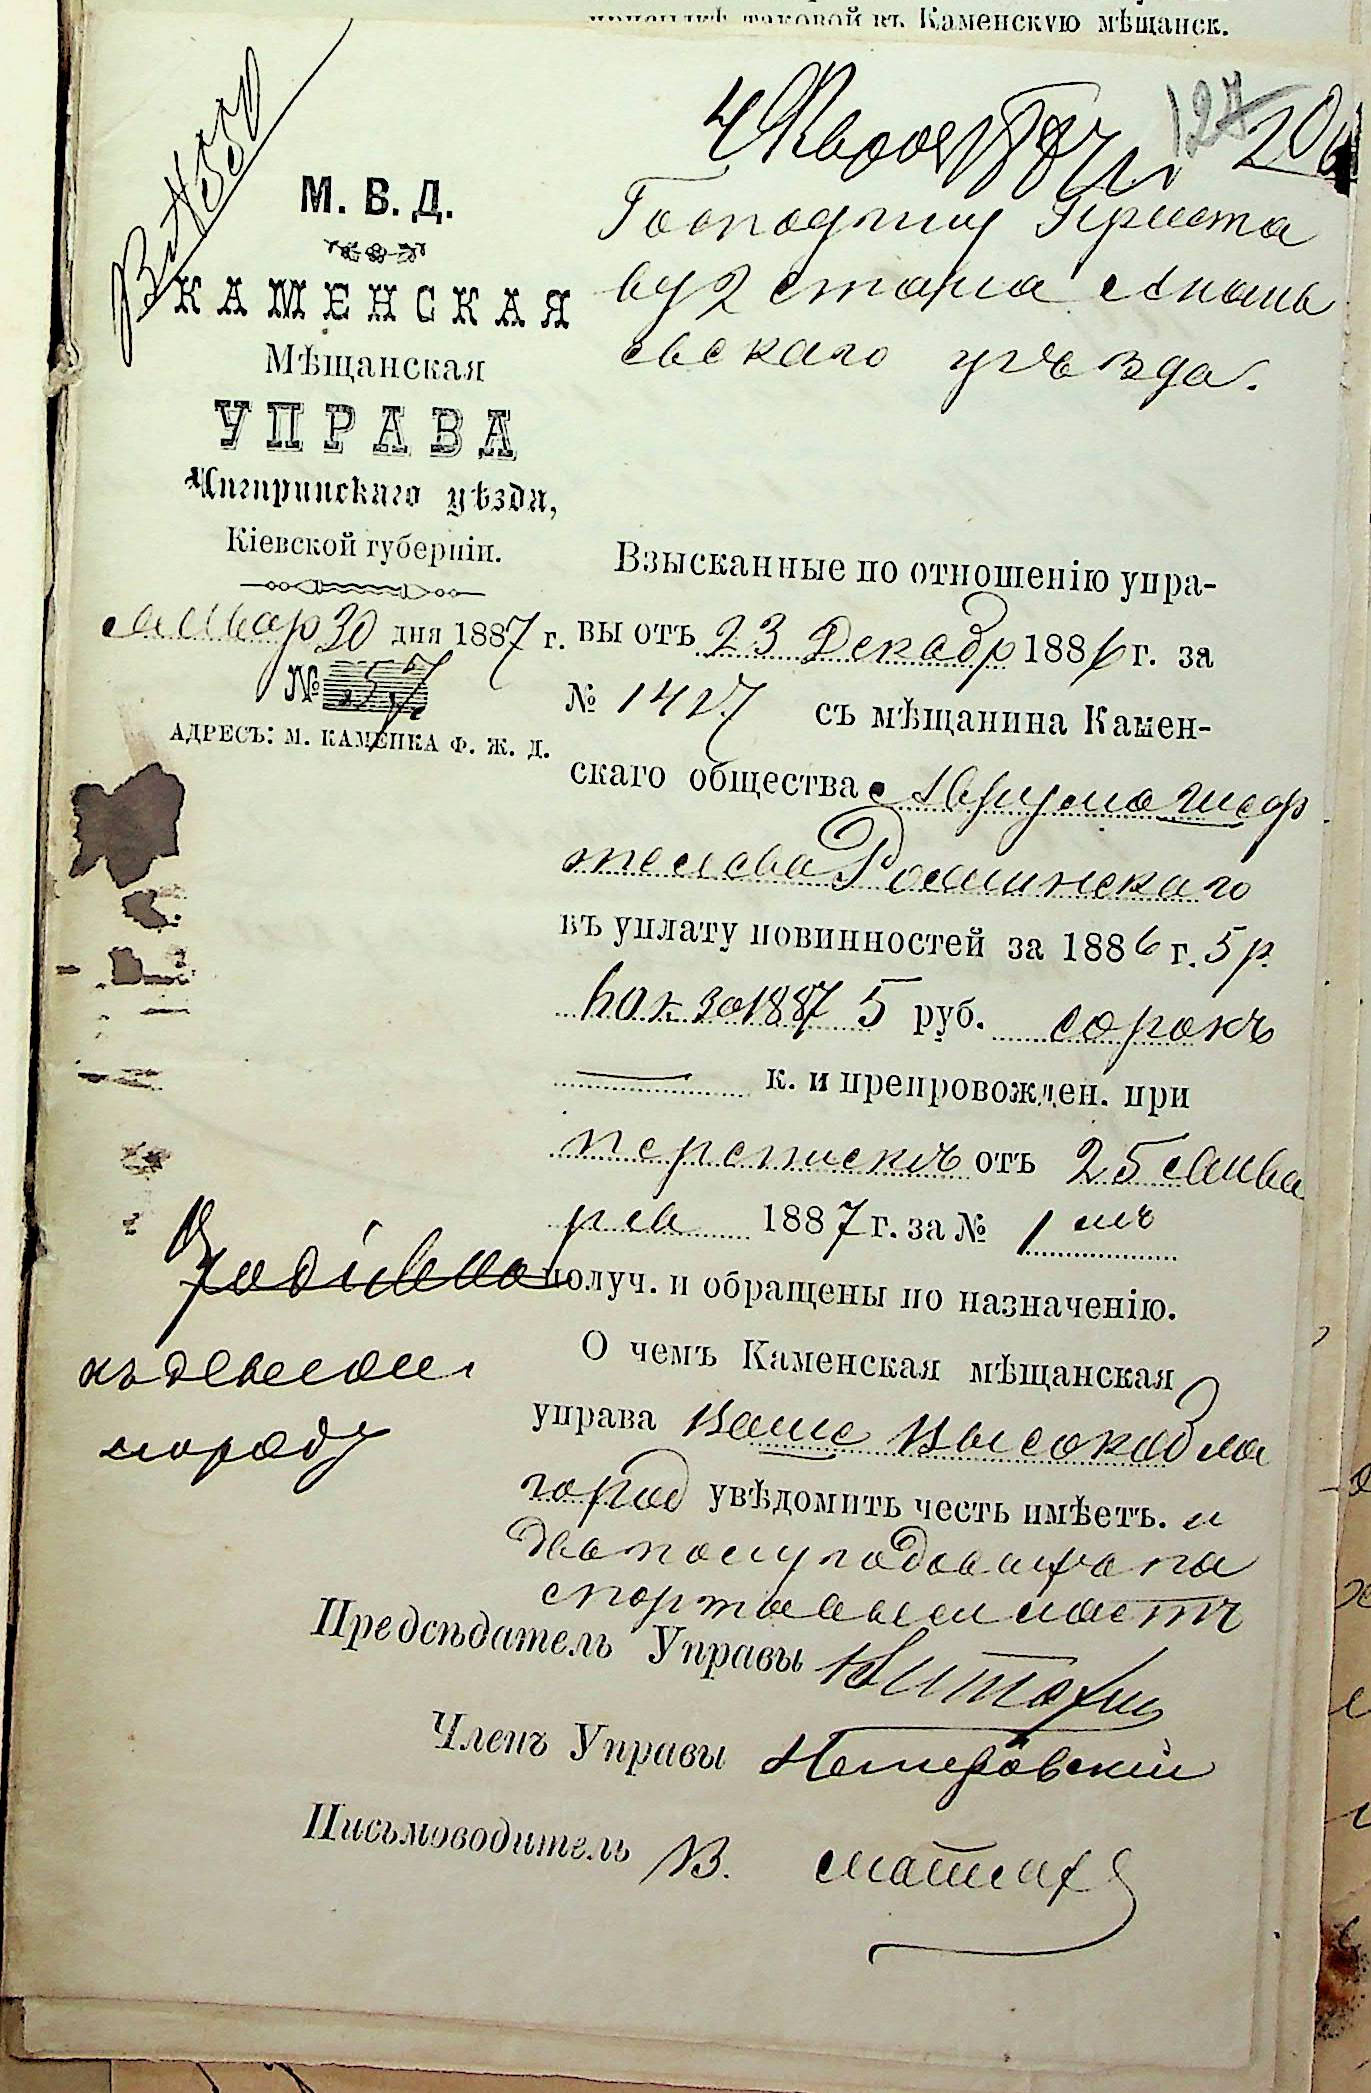 таковой въ Каменскую мѣщанск.
Вх № 550
4 Февр 87 г.
127 20
М. В. Д.
КАМЕНСКАЯ
Мѣщанская
УПРАВА
Чигиринскаго уѣзда,
Кіевской губерніи.
Январ 30 дня 1887 г.
№ 57
АДРЕСЪ: М. КАМЕНКА Ф. Ж. Д.
Господину Приста
ву 2 стана Анань
евскаго уѣзда.
Взысканные по отношенію упра-
вы отъ 23 Декабр 1886 г. за
№ 1427 съ мѣщанина Камен-
скаго общества Аврума Шеф
телева Рошинскаго
въ уплату повинностей за 1886 г. 5 р.
80 к. за 1887 5 руб. сорокъ
— к. и препровожден. при
перепискѣ отъ 25 Янва
ря 1887 г. за № 1 мъ
получ. и обращены по назначенію.
О чемъ Каменская мѣщанская
управа Ваше Высокобла
город увѣдомить честь имѣетъ. и
два полугодовыхъ па
спорта высылаетъ
къ дѣлом
наряду
Предсѣдатель Управы
Членъ Управы Немировскій
Письмоводитель В.